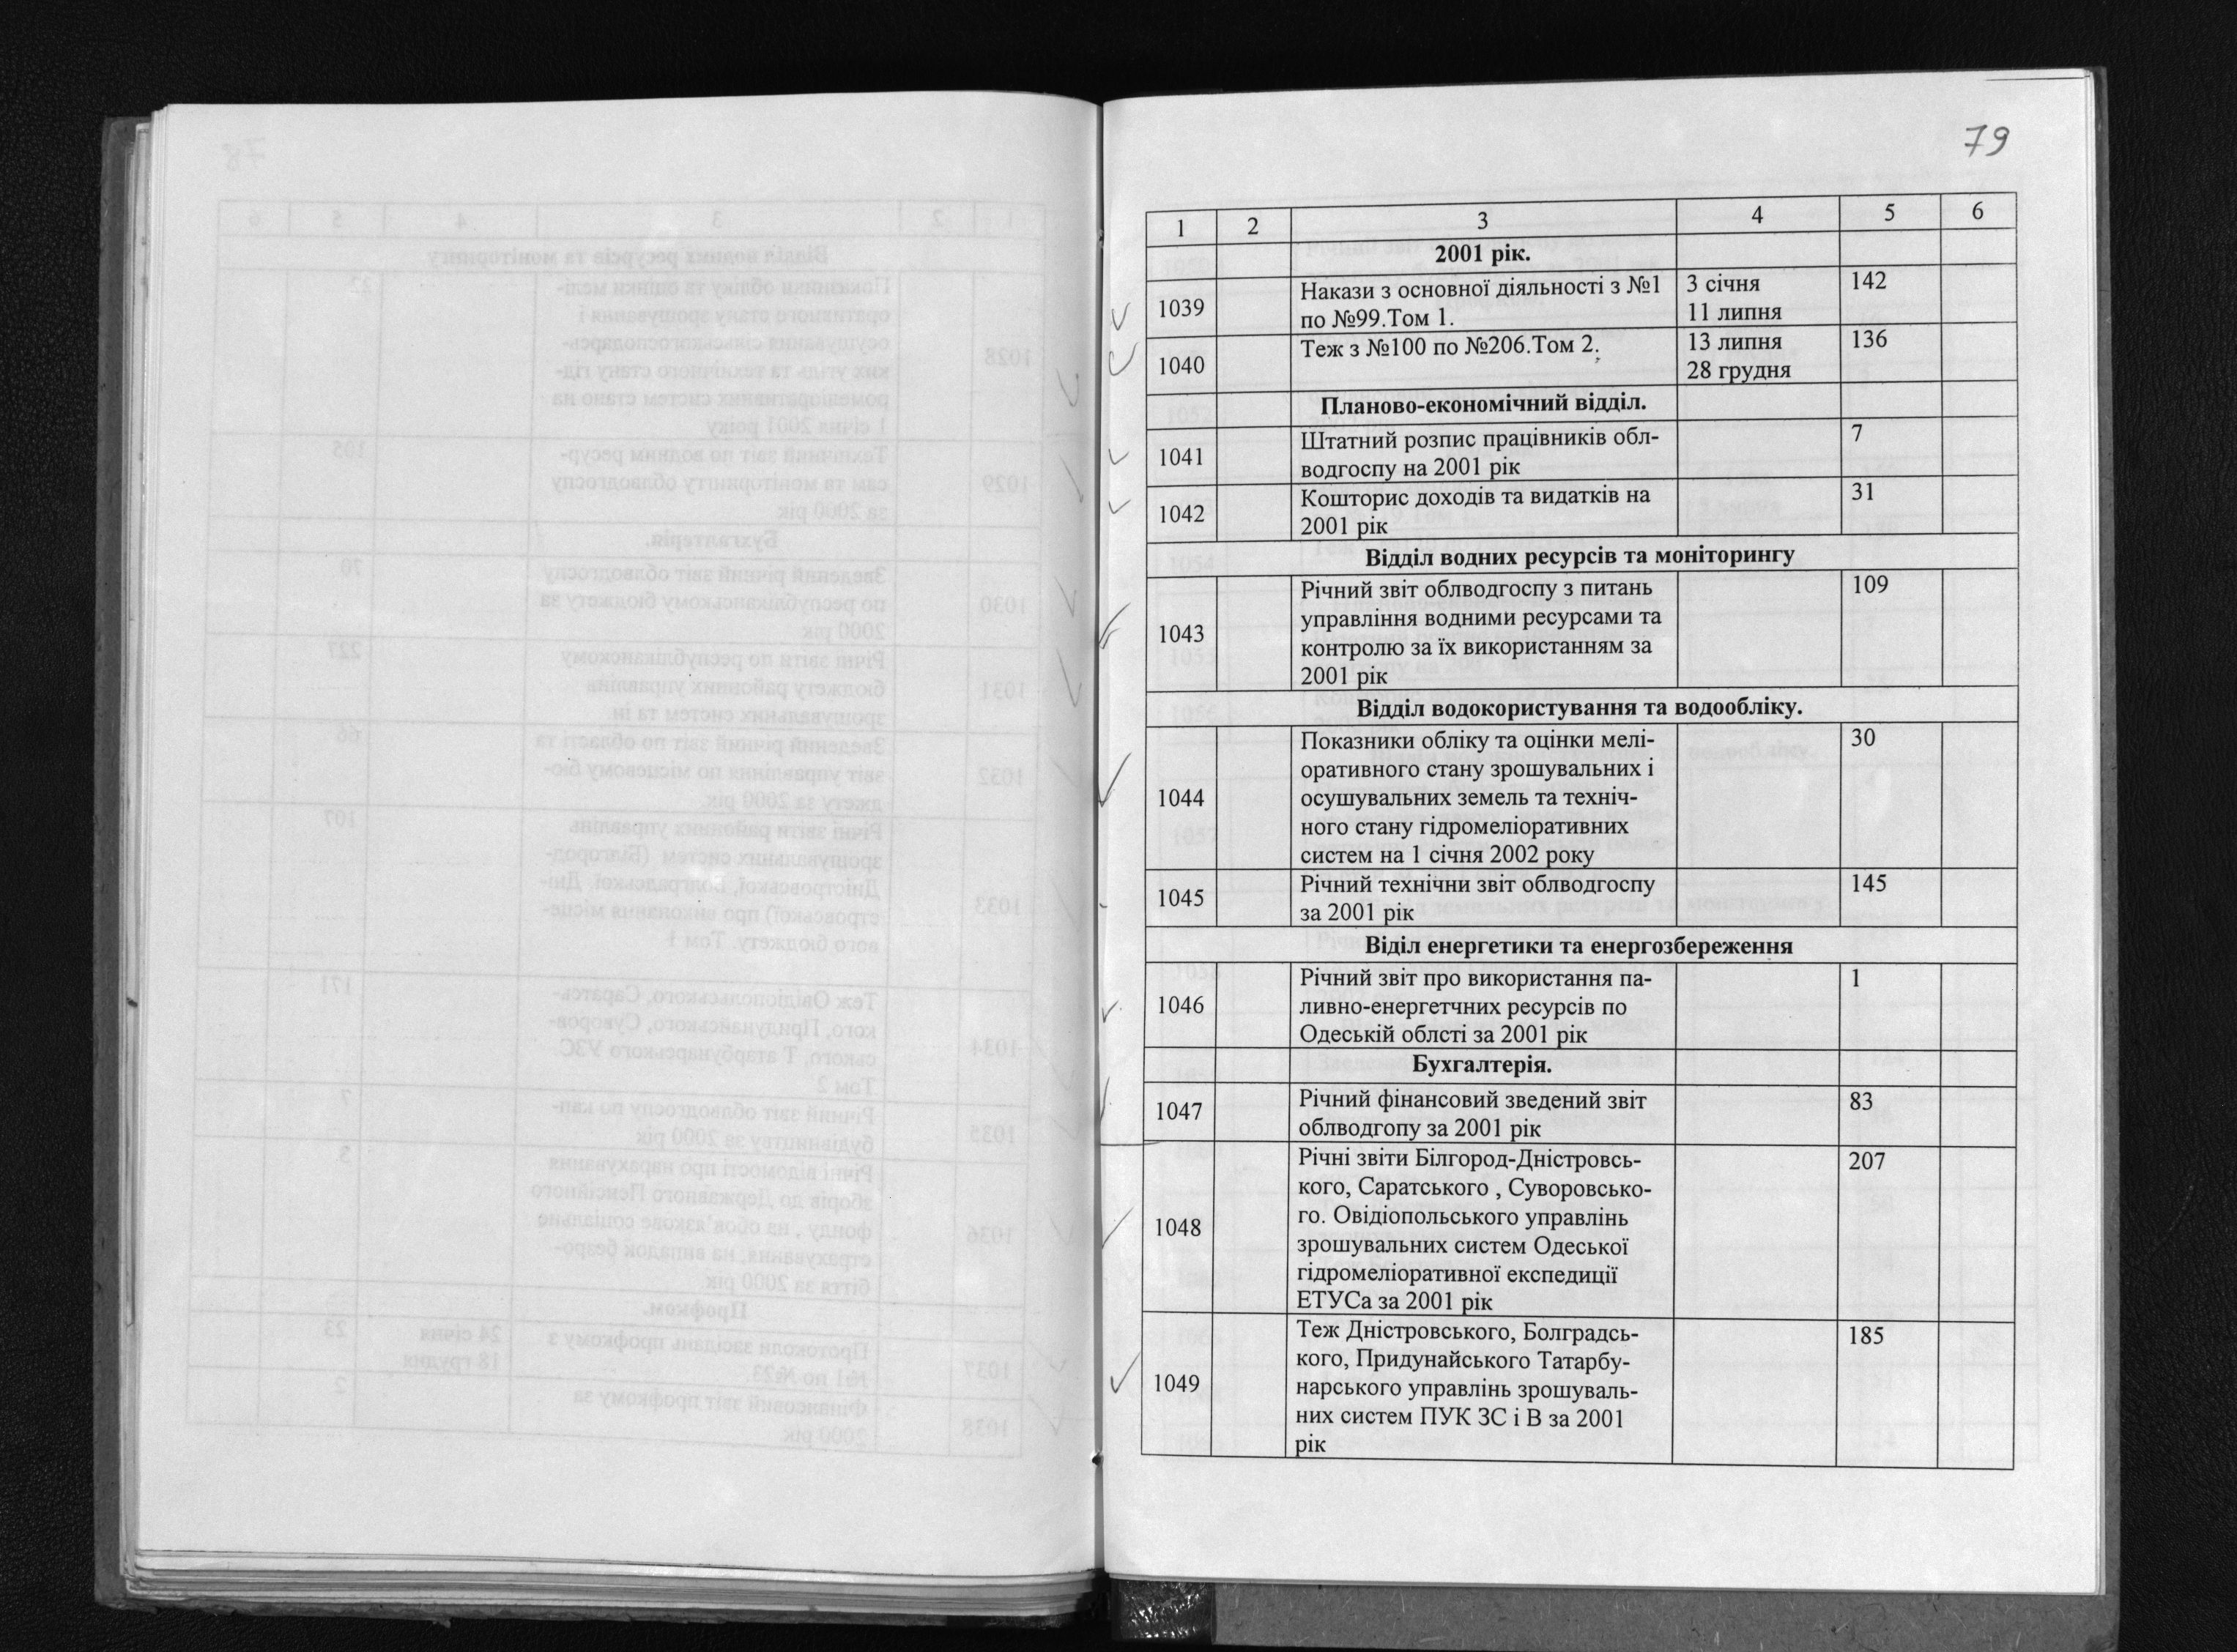 79
1 2 3 4 5 6
2001 рік.
1039 Накази з основної діяльності з №1 3 січня 142
по №99.Том 1. 11 липня
1040 Теж з №100 по №206.Том 2. 13 липня 136
28 грудня
Планово-економічний відділ.
1041 Штатний розпис працівників обл- 7
водгоспу на 2001 рік
1042 Кошторис доходів та видатків на 31
2001 рік
Відділ водних ресурсів та моніторингу
1043 Річний звіт облводгоспу з питань 109
управління водними ресурсами та
контролю за їх використанням за
2001 рік
Відділ водокористування та водообліку.
1044 Показники обліку та оцінки мелі- 30
оративного стану зрошувальних і
осушувальних земель та техніч-
ного стану гідромеліоративних
систем на 1 січня 2002 року
1045 Річний технічни звіт облводгоспу 145
за 2001 рік
Віділ енергетики та енергозбереження
1046 Річний звіт про використання па- 1
ливно-енергетчних ресурсів по
Одеській облсті за 2001 рік
Бухгалтерія.
1047 Річний фінансовий зведений звіт 83
облводгопу за 2001 рік
1048 Річні звіти Білгород-Дністровсь- 207
кого, Саратського , Суворовсько-
го. Овідіопольського управлінь
зрошувальних систем Одеської
гідромеліоративної експедиції
ЕТУСа за 2001 рік
1049 Теж Дністровського, Болградсь- 185
кого, Придунайського Татарбу-
нарського управлінь зрошуваль-
них систем ПУК ЗС і В за 2001
рік